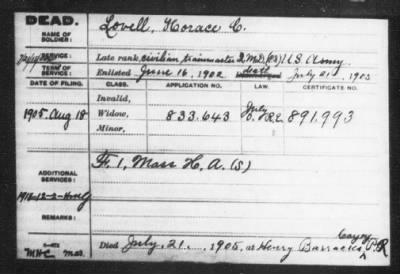 DEAD.
NAME OF SOLDIER: Lovell, Horace C.
SERVICE: Late rank, civilian trainmaster Q.M.D. U.S. Army
TERM OF SERVICE: Enlisted June 16, 1902 death July 21, 1905
DATE OF FILING. CLASS. APPLICATION NO. LAW. CERTIFICATE NO.
Invalid,
1905 Aug 18 Widow, 833.643 July 891,993
Minor,
ADDITIONAL SERVICES: F. 1, Mass H. A. (S)
REMARKS:
Died July 21, 1905, at Henry Barracks Cayey P.R